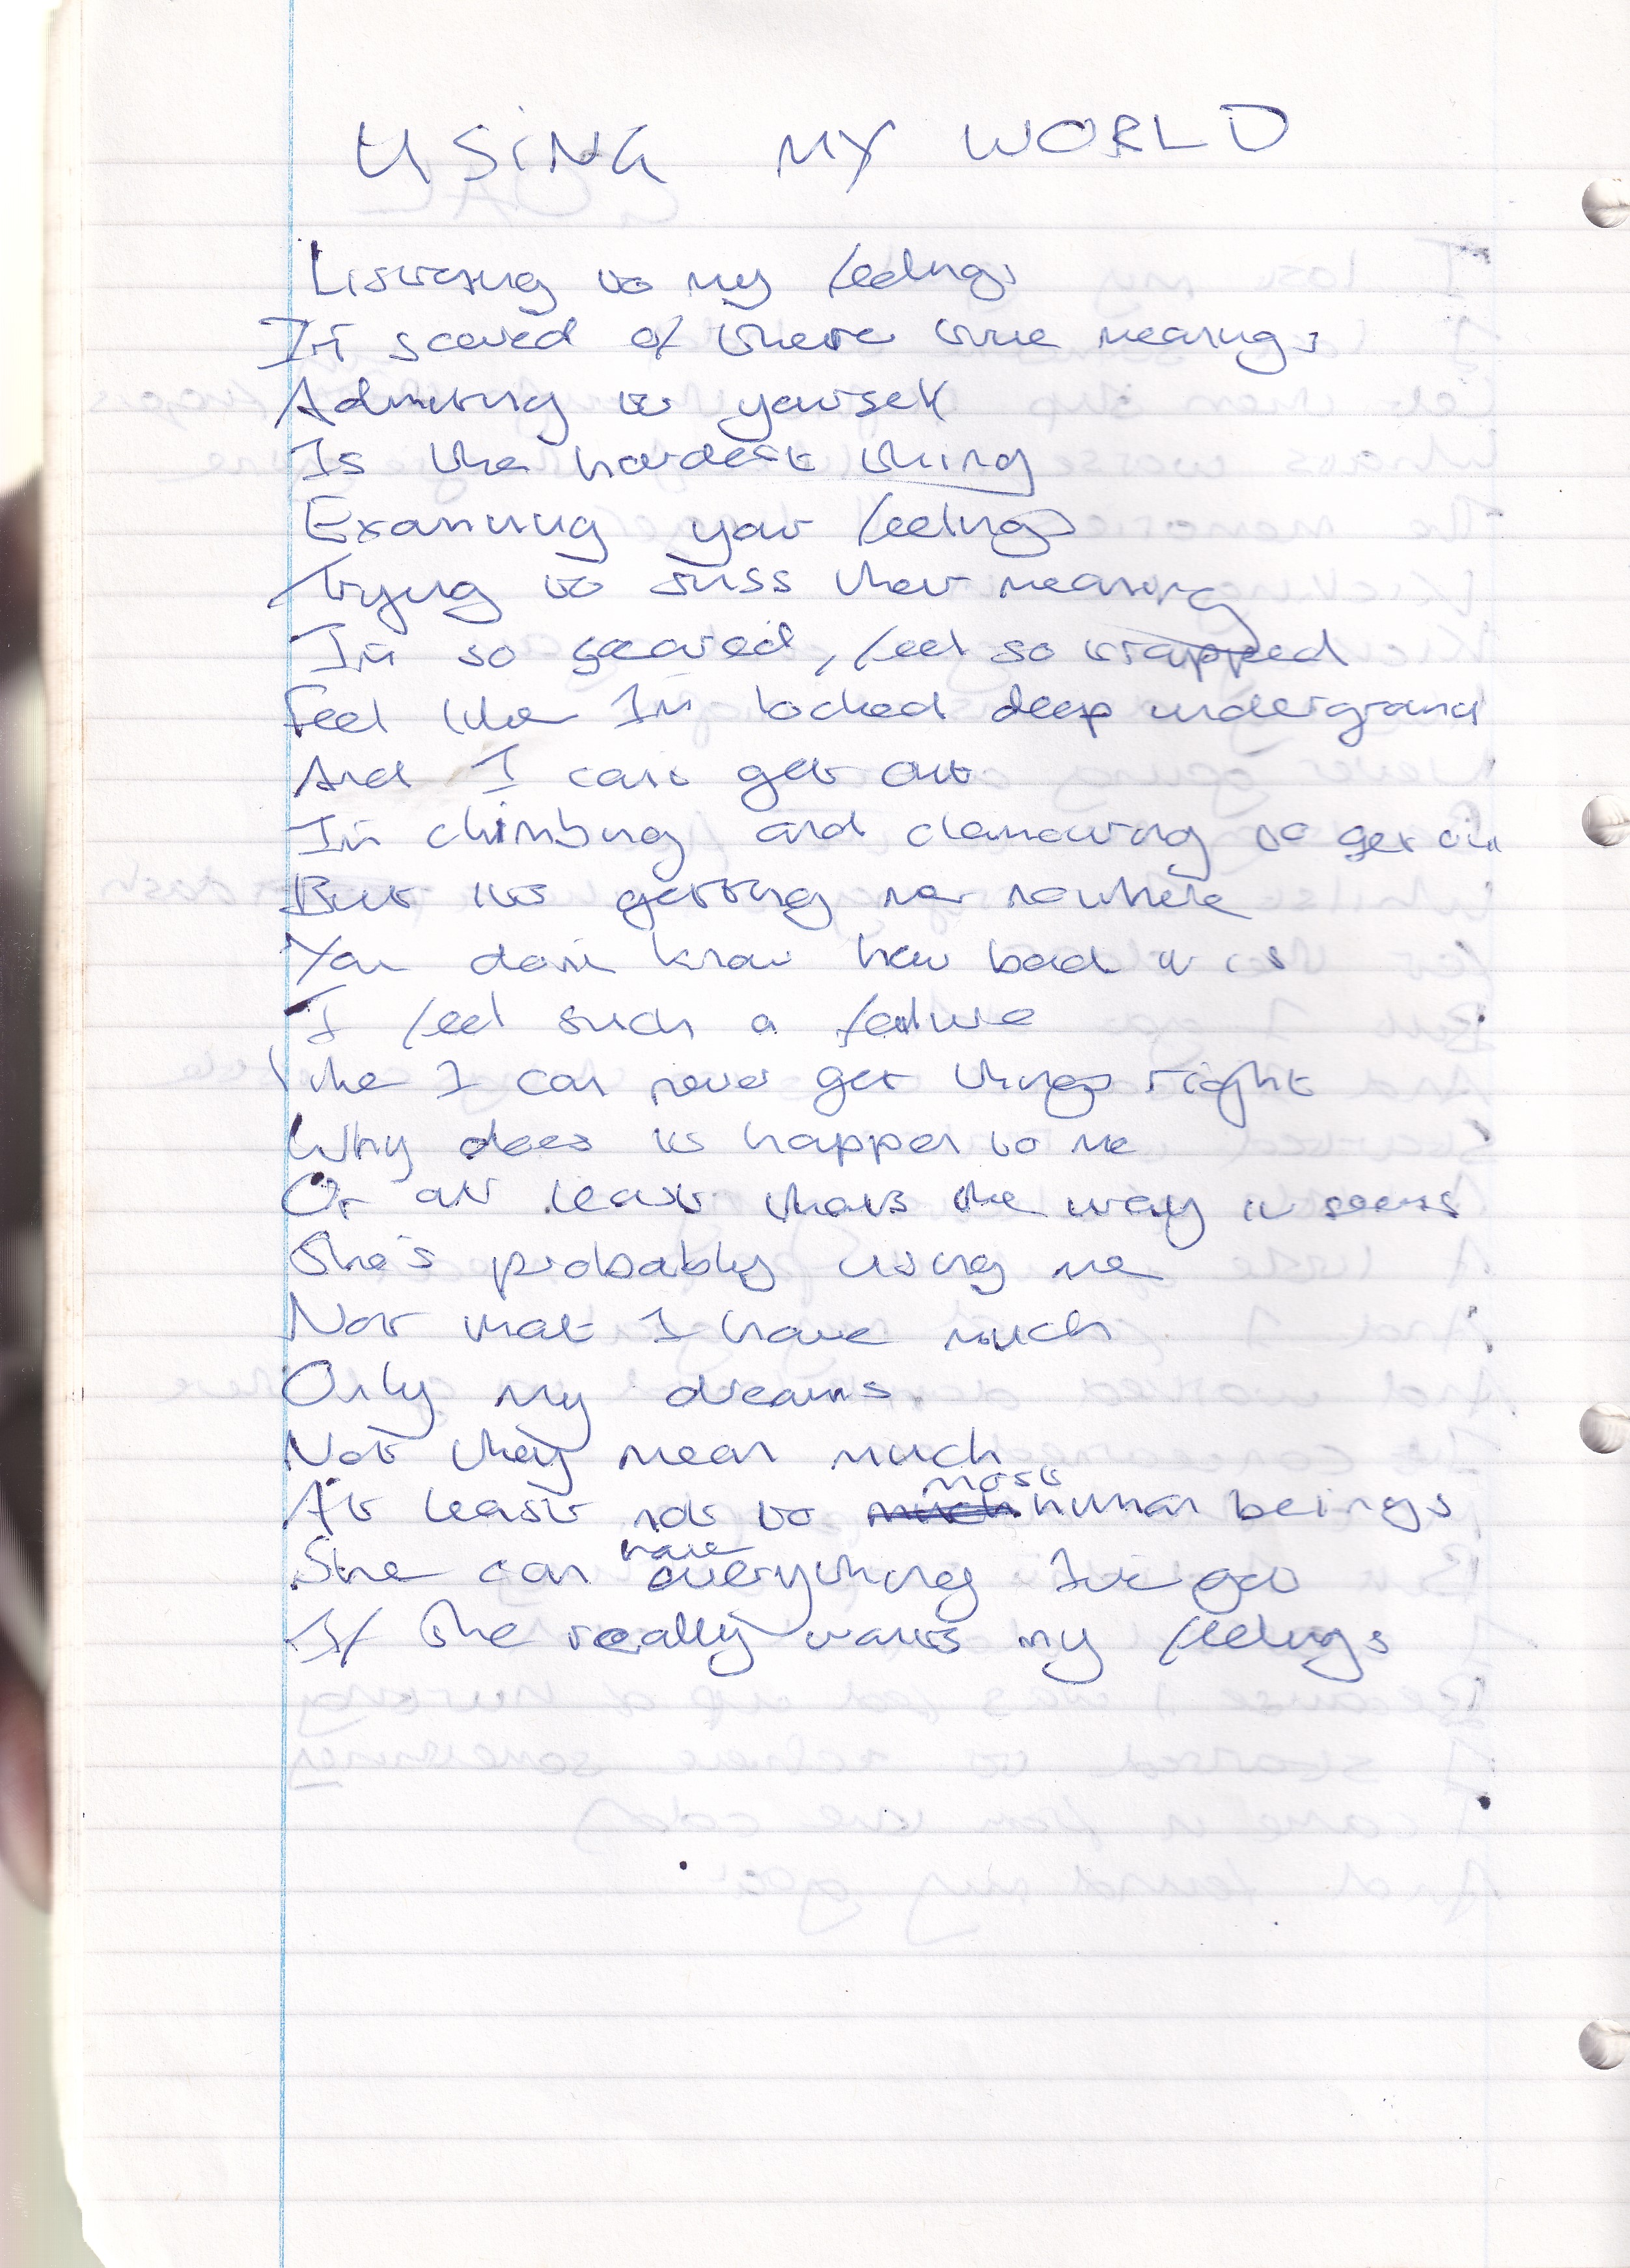 USiNG MY WORLD
Listening to my feelings
I'm scared of there true meanings
Admitting to yourself
Is the hardest thing
Examining your feelings
Trying to suss their meaning
I'm so scared, feel so trapped
Feel like I'm locked deep underground
And I can't get out
I'm climbing and clamouring to get out
But its getting me nowhere
You don't know how bad it is
I feel such a failure
like I can never get things right
Why does it happen to me
Or at least thats the way it seems
She's probably using me
Not that I have much
Only my dreams
Not they mean much
At least not to most human beings
She can have everything I've got
If she really wants my feelings